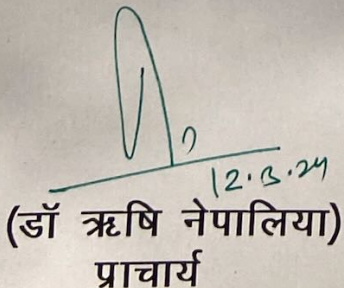 12.3.24
(डॉ ऋषि नेपालिया)
प्राचार्य